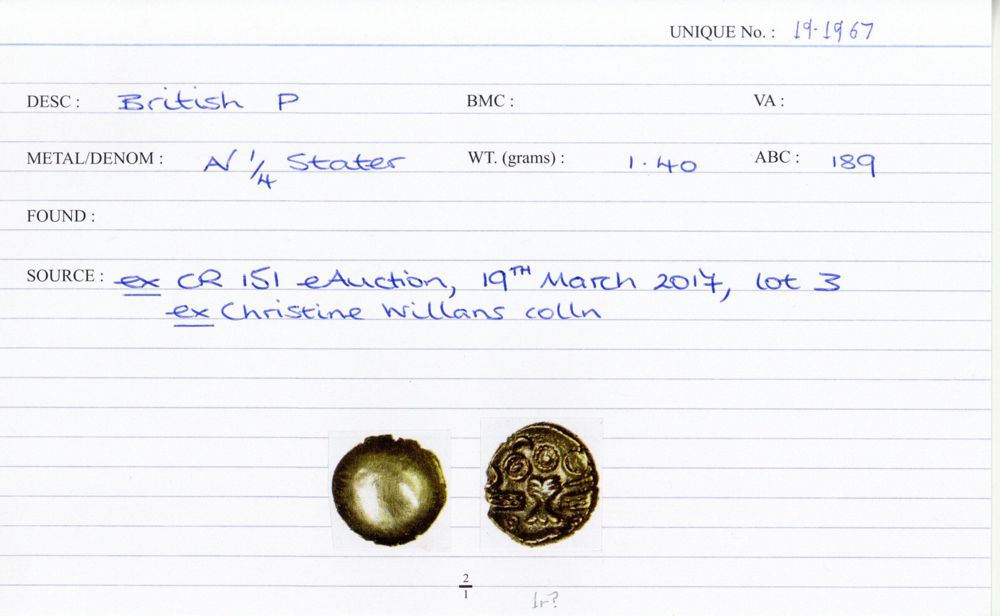 UNIQUE No. : 19-1967
DESC : British P BMC : VA :
METAL/DENOM : N 1/4 Stater WT. (grams) : 1.40 ABC : 189
FOUND :
SOURCE : ex CR 151 eAuction, 19TH March 2017, lot 3
ex Christine Willans colln
2/1
1r?